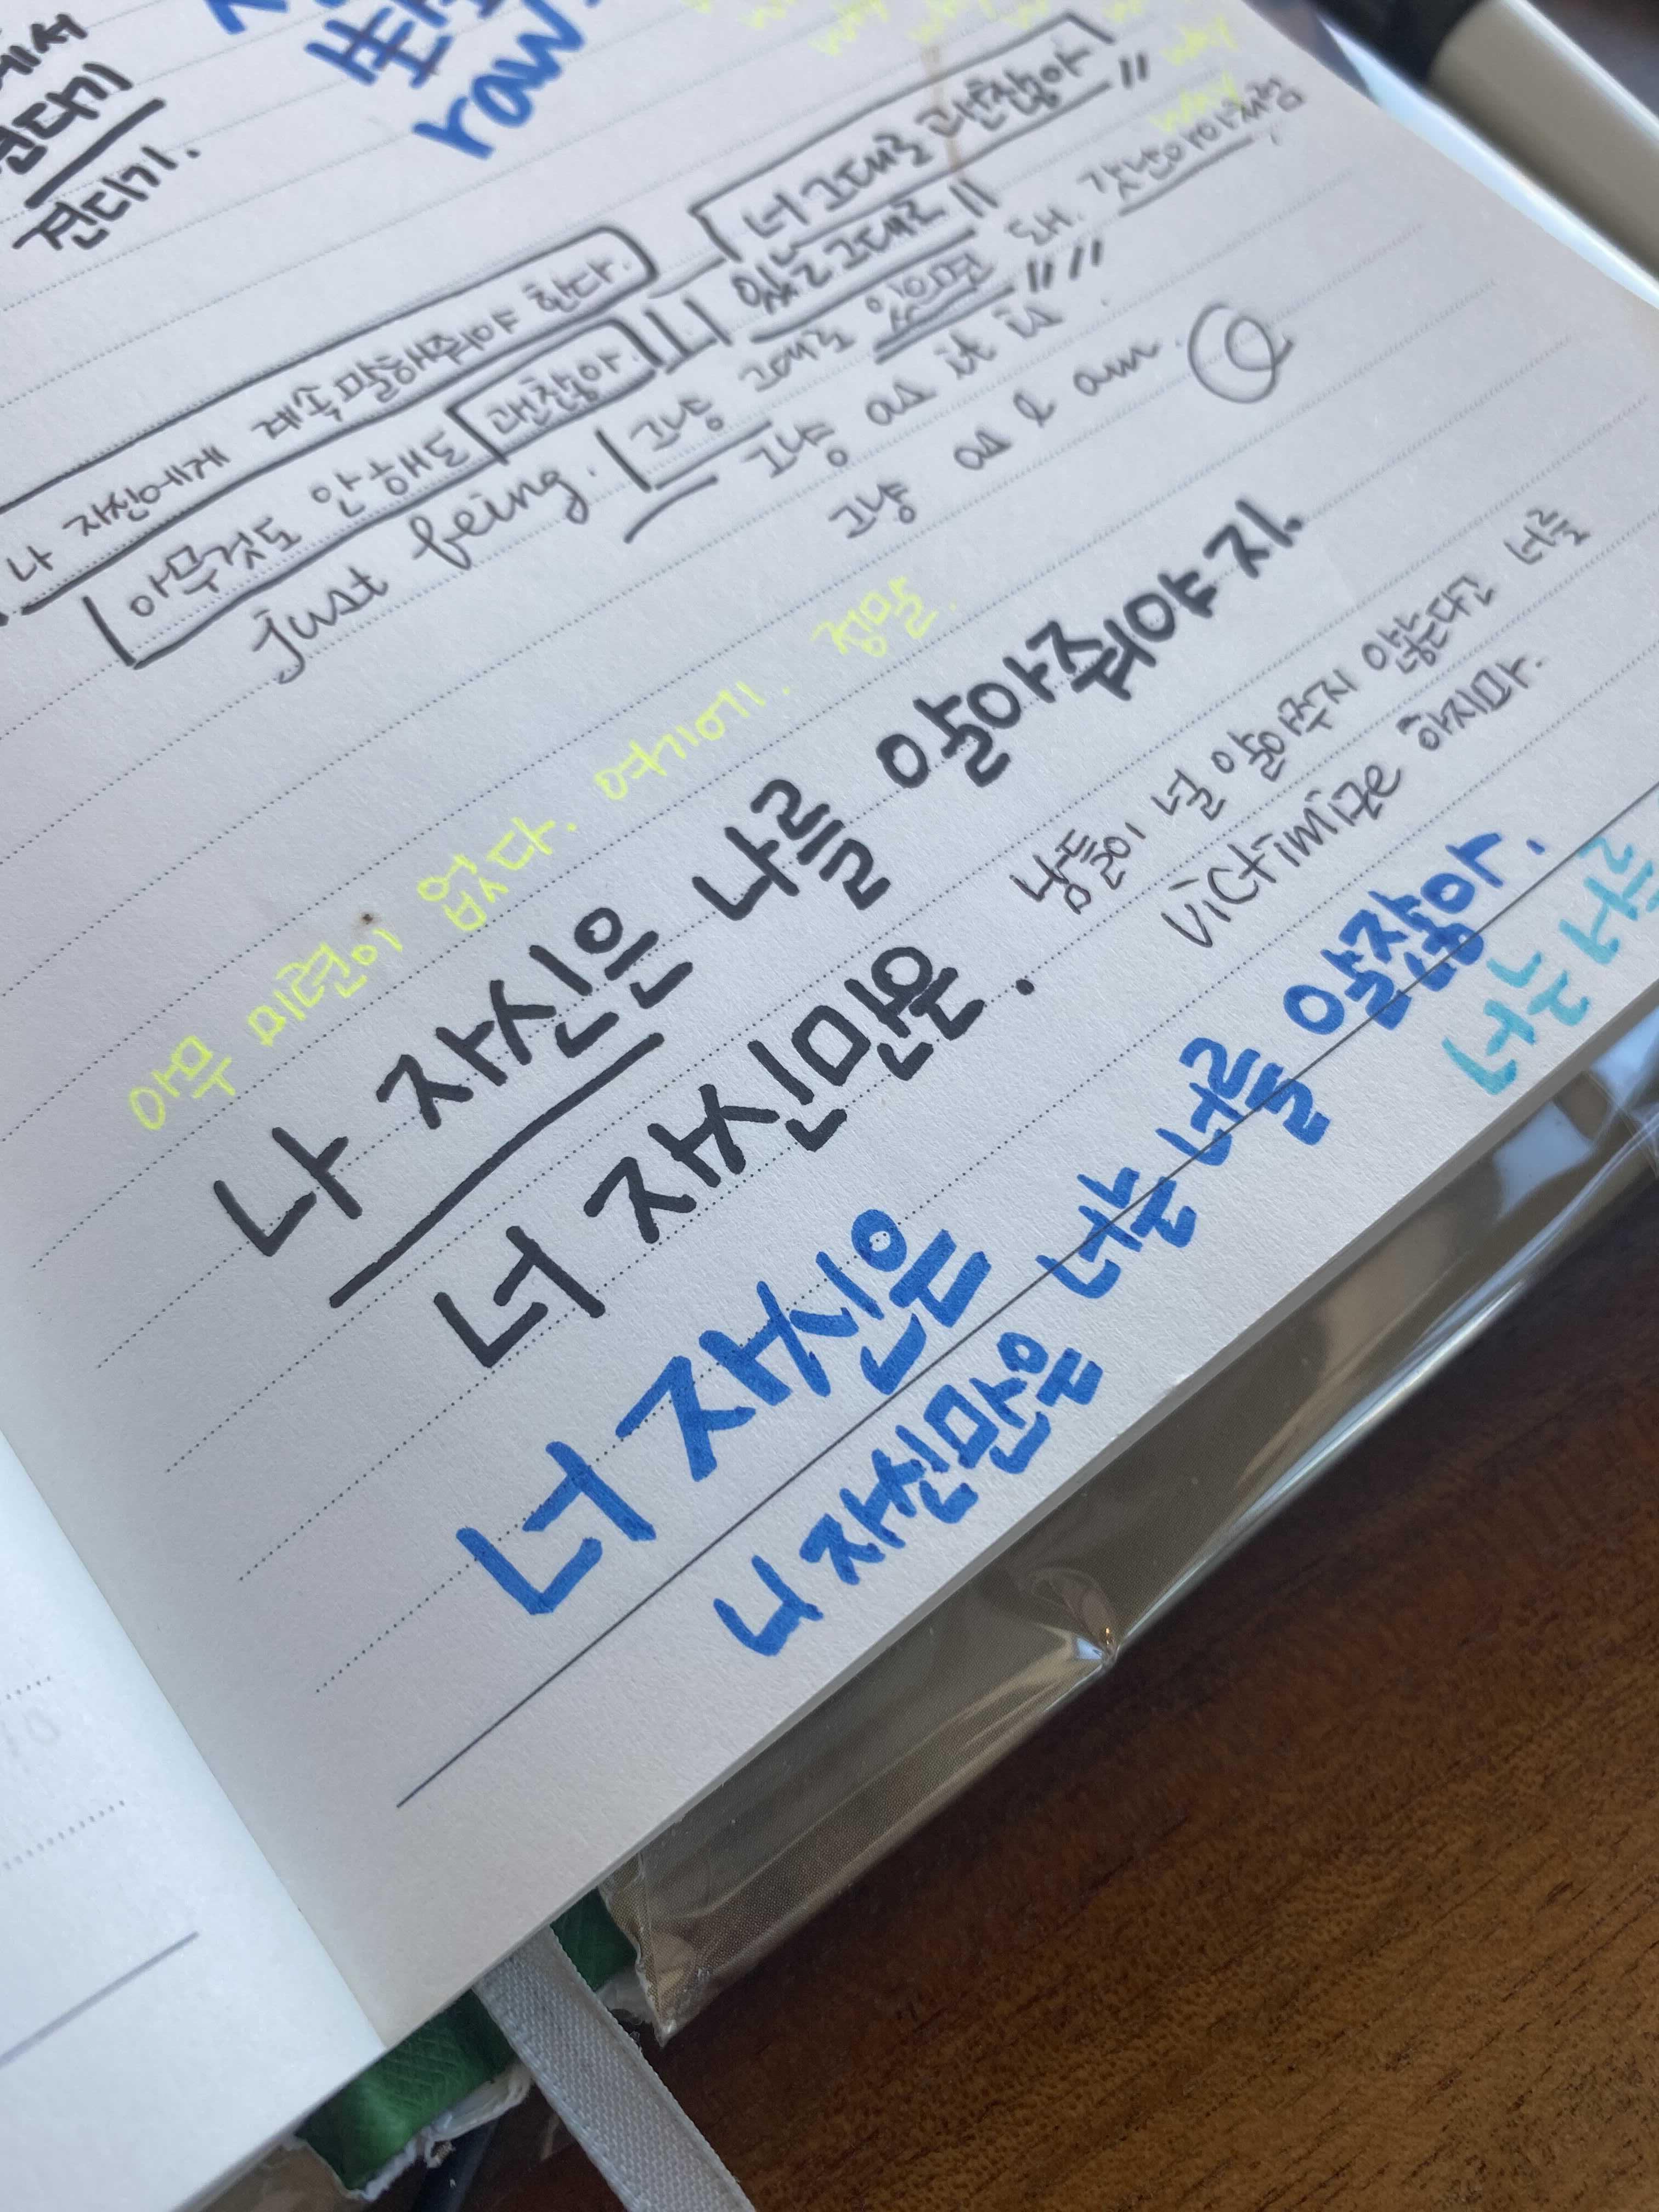 에서
견디기
견디기.
raw.
way
way
나 자신에게 계속 말해줘야 한다.
너 그대로 괜찮아"
아무것도 안해도 괜찮아. 있는 그대로"
just being. 그냥 그대로 있으면 돼. 갓난아이처럼.
그냥 as it is."
그냥 as I am.
아무 미련이 없다. 여기에. 정말.
나 자신은 나를 알아줘야지.
너 자신만은.
남들이 널 알아주지 않는다고 너를
victimize 하지마.
너 자신은 너는 너를 알잖아.
니 자신만은